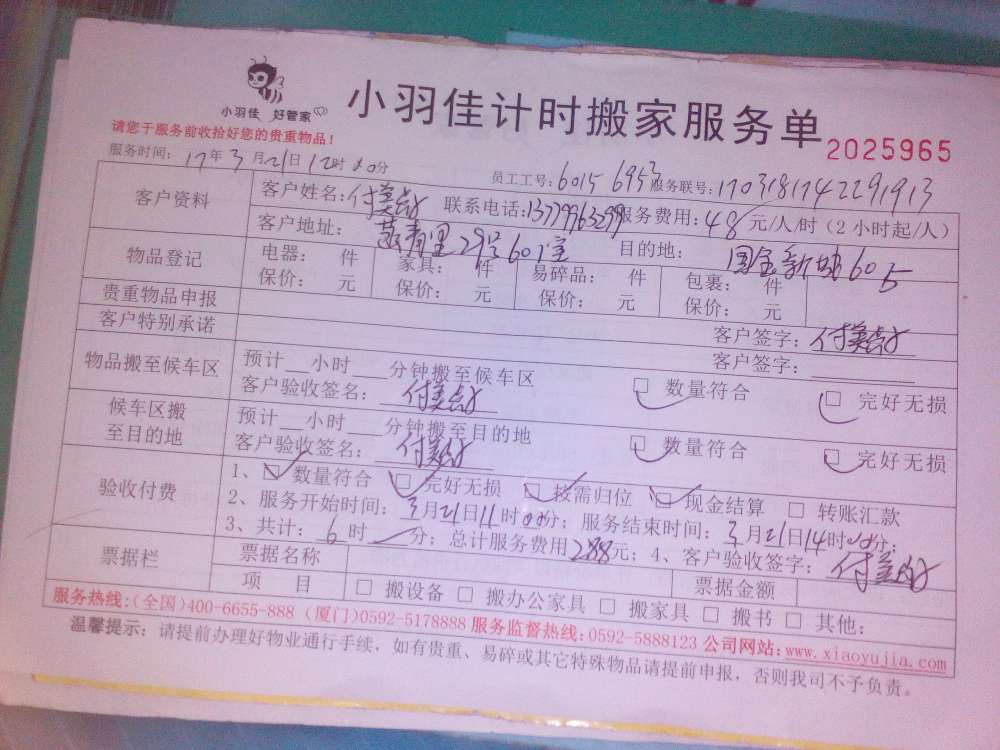 小羽佳 好管家
小羽佳计时搬家服务单
2025965
请您于服务前收拾好您的贵重物品！
服务时间：17年3月21日12时00分 员工工号：6015 6953 服务联号：170318174229 1913
客户资料 客户姓名：付美 联系电话：13779963299 服务费用：48元/人/时（2小时起/人）
客户地址：青里29号601室 目的地：国金新城605
物品登记 电器： 件 家具： 件 易碎品： 件 包裹： 件
保价： 元 保价： 元 保价： 元 保价： 元
贵重物品申报 客户签字：付美
客户特别承诺 客户签字：
物品搬至候车区 预计__小时___分钟搬至候车区 □ 数量符合 □ 完好无损
客户验收签名：付美
候车区搬至目的地 预计__小时___分钟搬至目的地 □ 数量符合 □ 完好无损
客户验收签名：付美
验收付费 1、☑ 数量符合 ☑ 完好无损 ☑ 按需归位 ☑ 现金结算 □ 转账汇款
2、服务开始时间：3月21日11时00分；服务结束时间：3月21日14时00分；
3、共计：6时 分；总计服务费用288元；4、客户验收签字：付美
票据栏 票据名称 票据金额
项 目 □ 搬设备 □ 搬办公家具 □ 搬家具 □ 搬书 □ 其他：
服务热线：（全国）400-6655-888（厦门）0592-5178888 服务监督热线：0592-5888123 公司网站：www.xiaoyujia.com
温馨提示：请提前办理好物业通行手续，如有贵重、易碎或其它特殊物品请提前申报，否则我司不予负责。